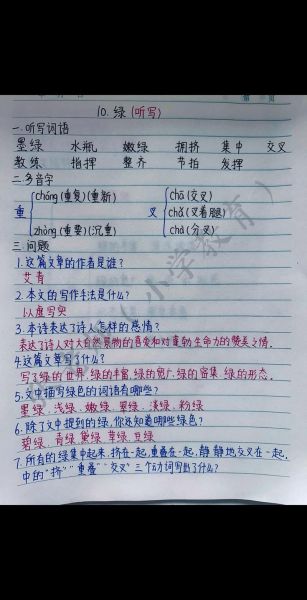 10. 绿 (听写)
一.听写词语
墨绿 水瓶 嫩绿 拥挤 集中 交叉
教练 指挥 整齐 节拍 发挥
二.多音字
重 chóng (重复)(重新) zhòng (重要)(沉重)
叉 chā (交叉) chǎ (叉着腿) chà (分叉)
三.问题
1.这篇文章的作者是谁?
艾青
2.本文的写作手法是什么?
以虚写实
3.本诗表达了诗人怎样的感情?
表达了诗人对大自然景物的喜爱和对蓬勃生命力的赞美之情.
4.这篇文章写了什么?
写了绿的世界.绿的丰富.绿的宽广.绿的密集.绿的形态.
5.文中描写绿色的词语有哪些?
墨绿.浅绿.嫩绿.翠绿.淡绿.粉绿
6.除了文中提到的绿,你还知道哪些绿色?
碧绿.青绿.黛绿.草绿.豆绿
7.所有的绿集中起来,挤在一起,重叠在一起,静静地交叉在一起.
中的"挤""重叠""交叉"三个动词写出了什么?
小学教育